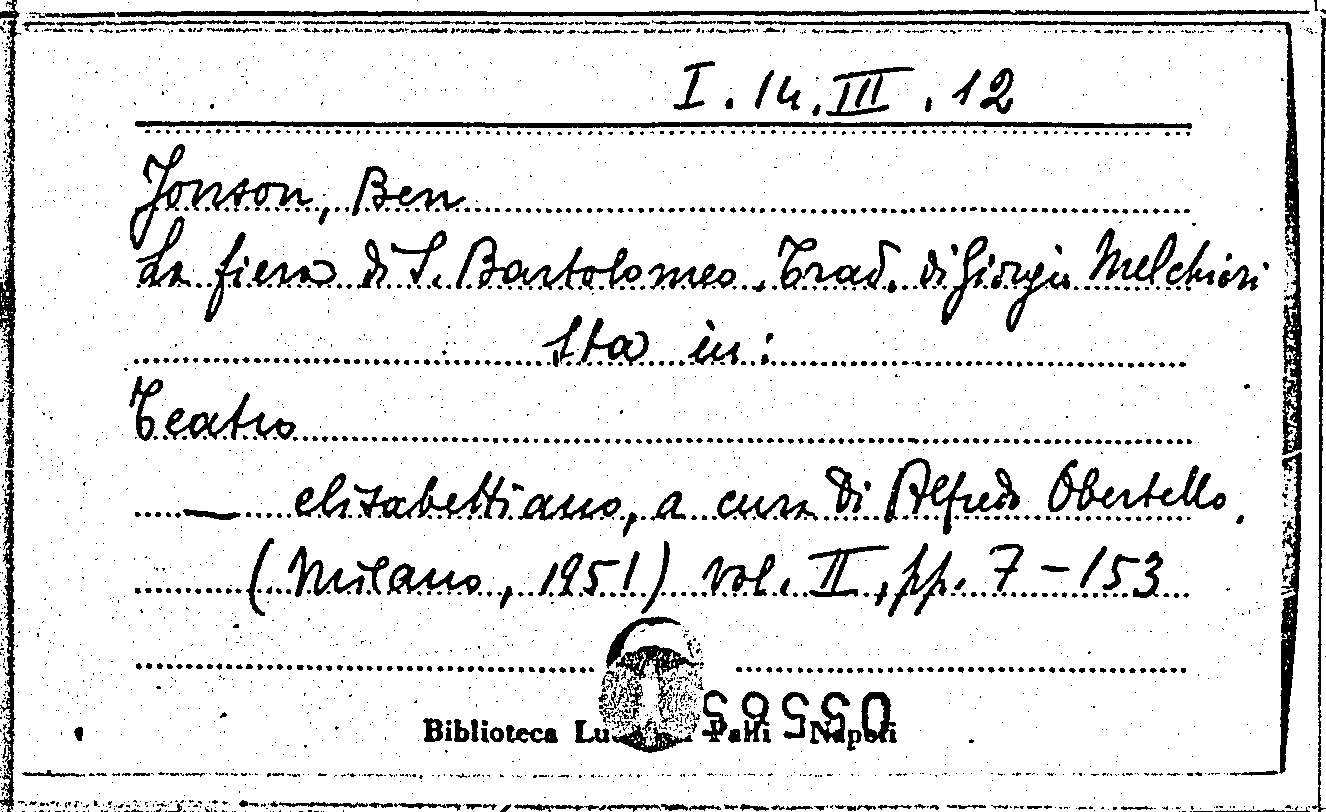 I.14.III.12
Jonson, Ben
La fiera di S. Bartolomeo. Trad. di Giorgio Melchiori
Sta in:
Teatro
— elisabettiano, a cura di Alfredo Obertello.
(Milano, 1951) vol. II, pp. 7-153
Biblioteca Palli Napoli